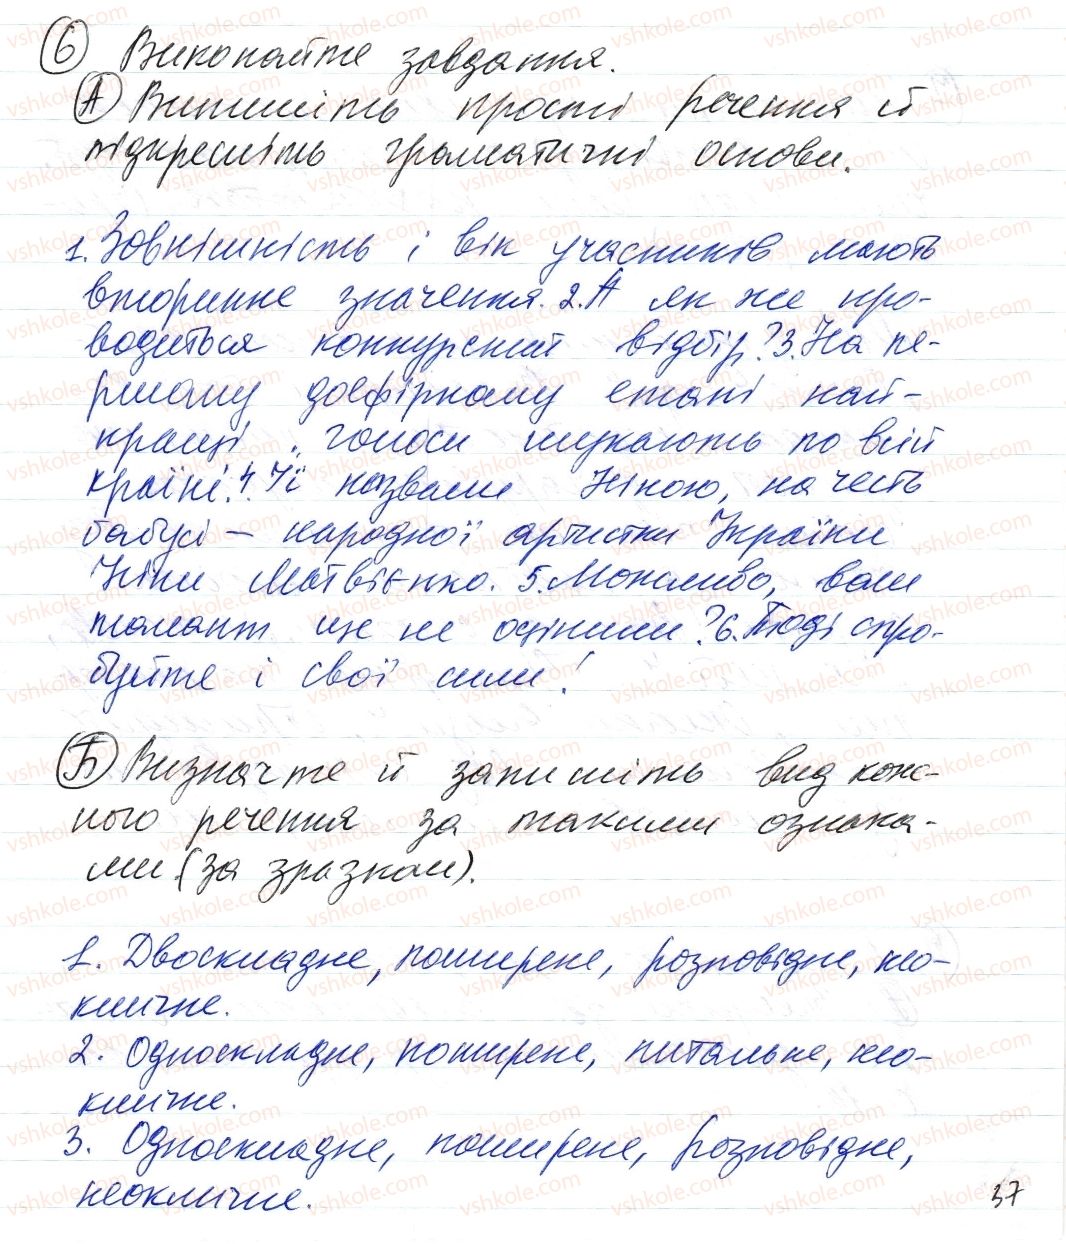 6 Виконайте завдання.
А Випишіть прості речення й
підкресліть граматичні основи.
1. Зовнішність і вік учасників мають
вторинне значення. 2. А як же про-
водиться конкурсний відбір? 3. На пе-
ршому доефірному етапі най-
кращі голоси шукають по всій
країні. 4. Її назвали Ніною, на честь
бабусі – народної артистки України
Ніни Матвієнко. 5. Можливо, ваш
талант ще не оцінили? 6. Тоді спро-
буйте і свої сили!
Б Визначте й запишіть вид кож-
ного речення за такими ознака-
ми (за зразком).
1. Двоскладне, поширене, розповідне, нео-
клічне.
2. Односкладне, поширене, питальне, нео-
клічне.
3. Односкладне, поширене, розповідне,
неоклічне.
37